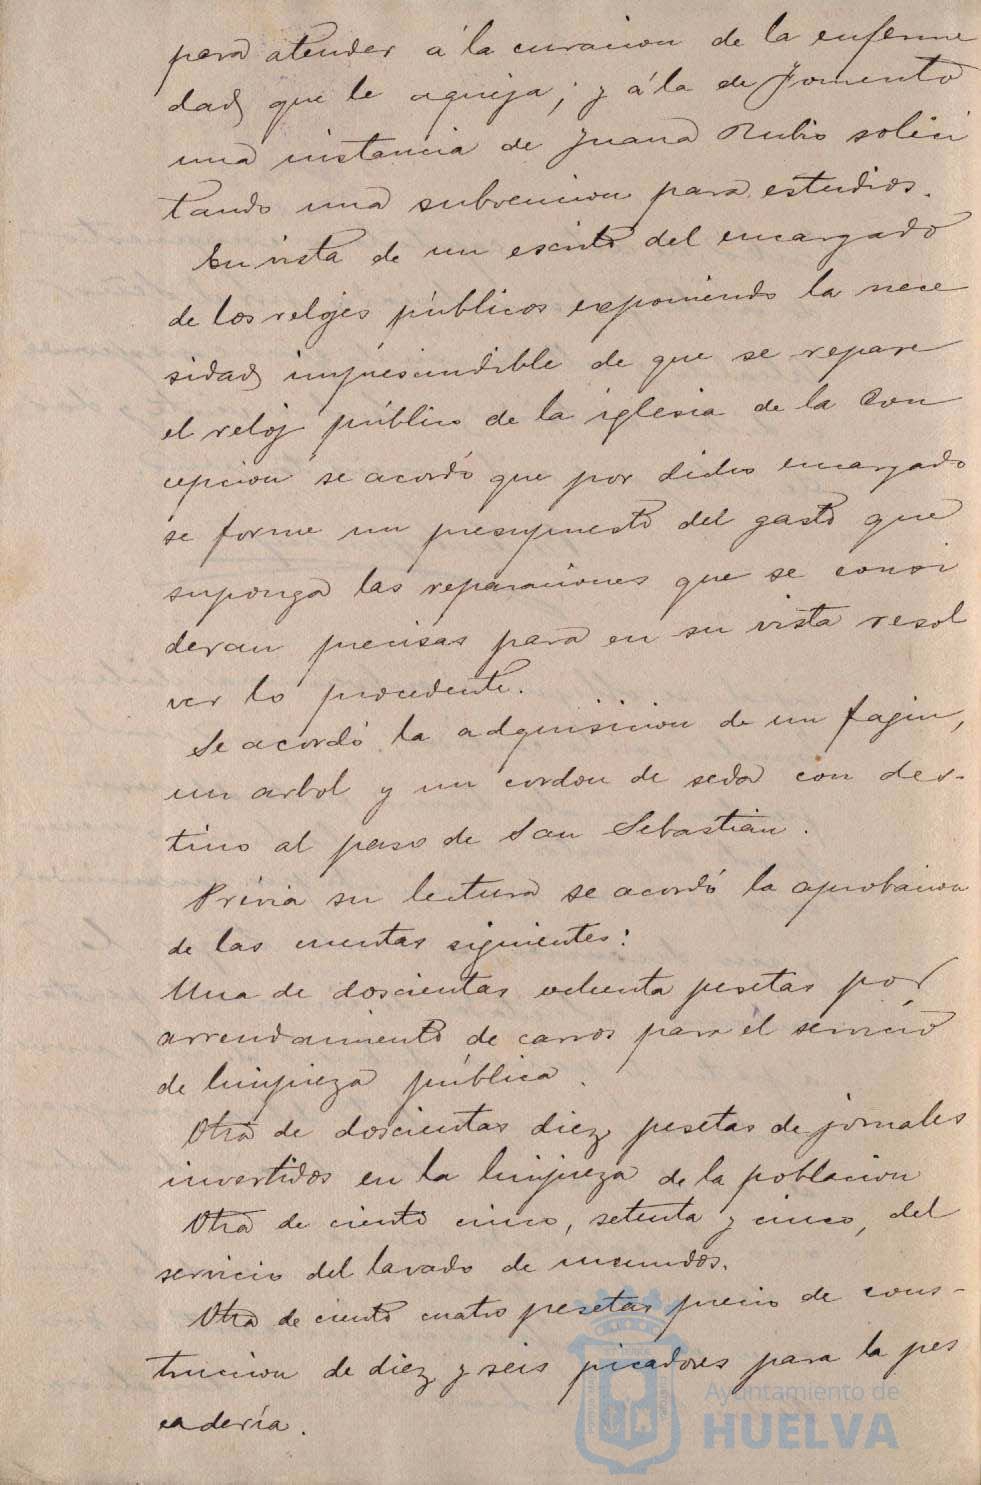 para atender á la curacion de la enferme
dad que le aqueja; y á la de Fomento
una instancia de Juana Rubio solici
tando una subvencion para estudios.
En vista de un escrito del encargado
de los relojes públicos exponiendo la nece
sidad imprescindible de que se repare
el reloj público de la iglesia de la Con
cepcion se acordó que por dicho encargado
se forme un presupuesto del gasto que
suponga las reparaciones que se consi
deran precisas para en su vista resol
ver lo procedente.
Se acordó la adquisicion de un fagin,
un arbol y un cordon de seda con des-
tino al paso de San Sebastián.
Prévia su lectura se acordó la aprobacion
de las cuentas siguientes:
Una de doscientas ochenta pesetas por
arrendamiento de carros para el servicio
de limpieza pública.
Otra de doscientas diez pesetas de jornales
invertidos en la limpieza de la poblacion
Otra de ciento cinco, setenta y cinco, del
servicio del lavado de inmundos.
Otra de ciento cuatro pesetas precio de cons-
truccion de diez y seis picadores para la pes
cadería.
Ayuntamiento de
HUELVA